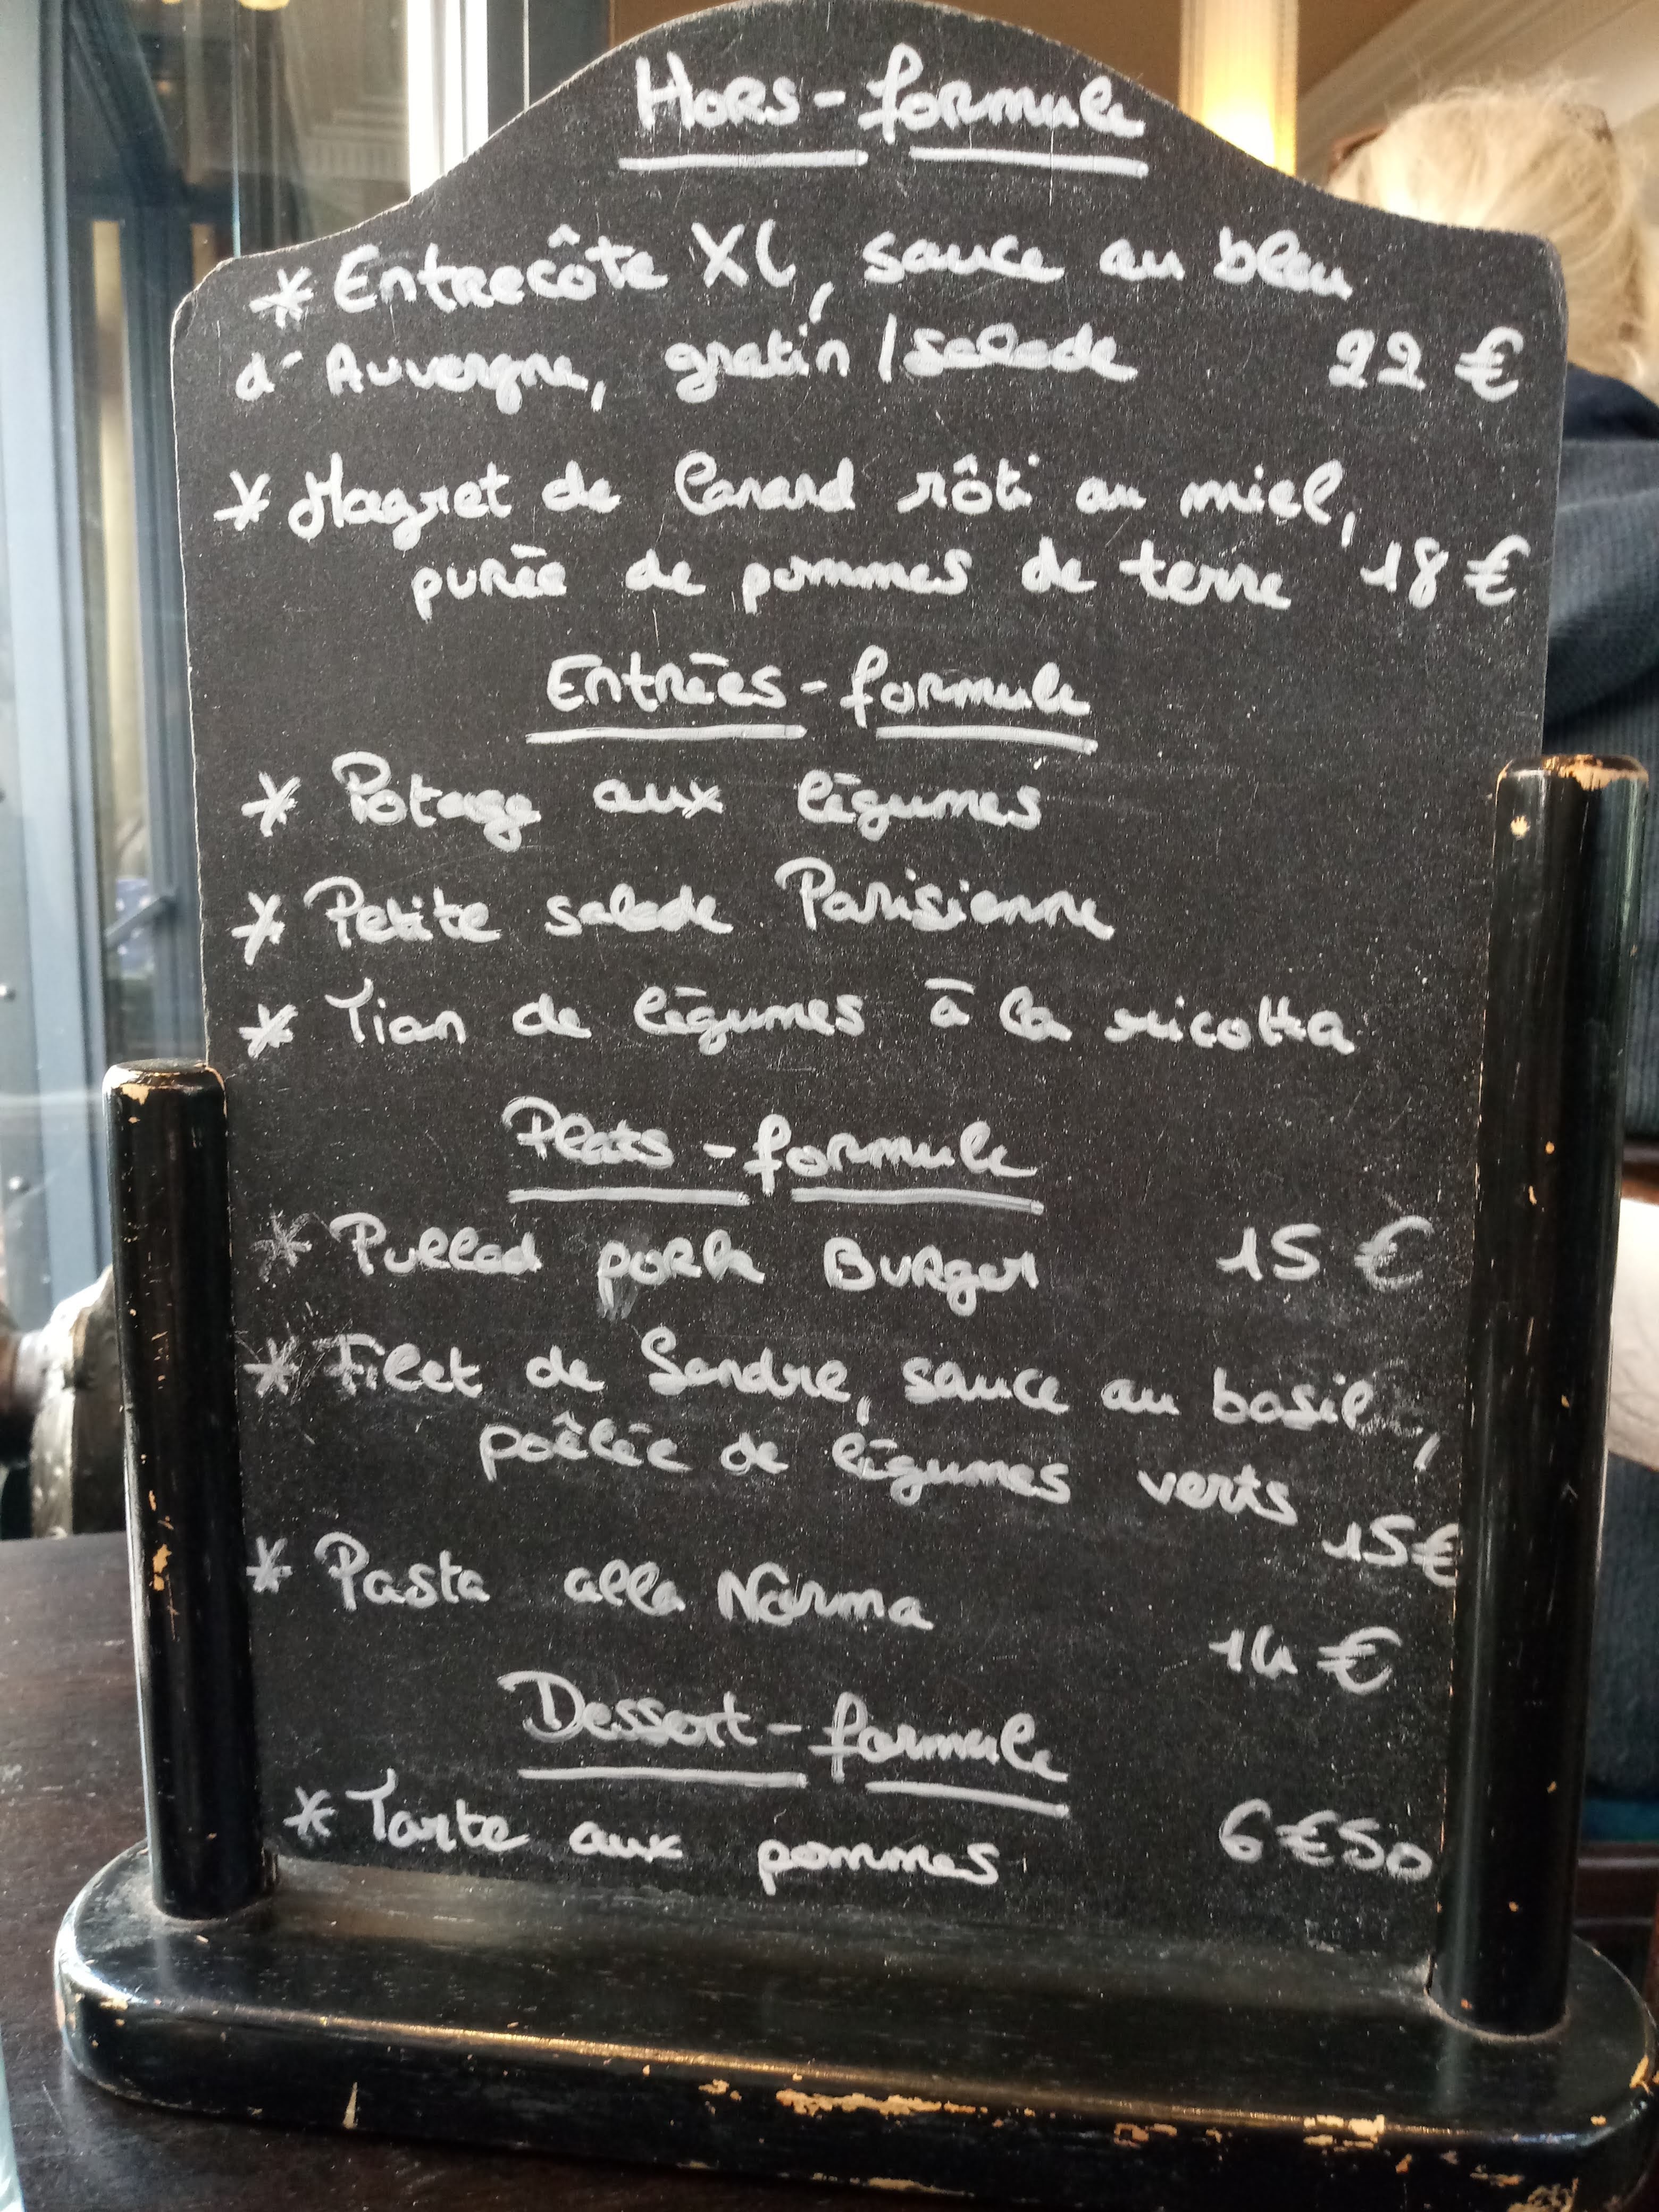 Hors-formule
* Entrecôte XL, sauce au bleu
d'Auvergne, gratin/salade 22 €
* Magret de Canard rôti au miel,
purée de pommes de terre 18 €
Entrées-formule
* Potage aux légumes
* Petite salade Parisienne
* Tian de légumes à la ricotta
Plats-formule
* Pulled pork Burger 15 €
* Filet de Sandre, sauce au basilic,
poêlée de légumes verts
15€
* Pasta alla Norma
14 €
Dessert-formule
* Tarte aux pommes 6€50